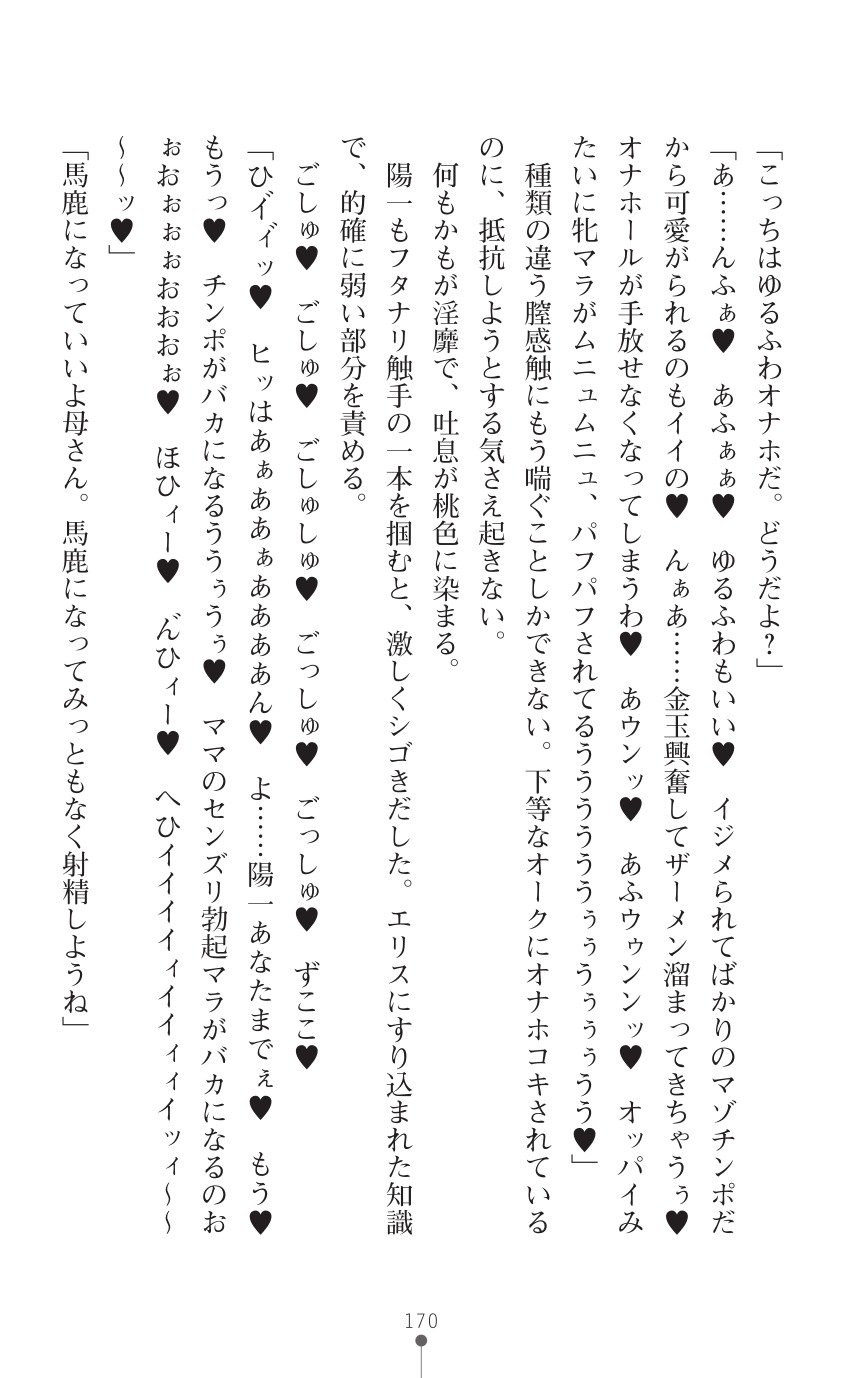 「こっちはゆるふわオナホだ。どうだよ？」
「あ……んふぁ♥　あふぁぁ♥　ゆるふわもいい♥　イジメられてばかりのマゾチンポだ
から可愛がられるのもイイの♥　んぁあ……金玉興奮してザーメン溜まってきちゃうぅ♥
オナホールが手放せなくなってしまうわ♥　あウンッ♥　あふウゥンンッ♥　オッパイみ
たいに牝マラがムニュムニュ、パフパフされてるうううううぅぅうぅぅぅうう♥」
　種類の違う膣感触にもう喘ぐことしかできない。下等なオークにオナホコキされている
のに、抵抗しようとする気さえ起きない。
　何もかもが淫靡で、吐息が桃色に染まる。
　陽一もフタナリ触手の一本を掴むと、激しくシゴきだした。エリスにすり込まれた知識
で、的確に弱い部分を責める。
　ごしゅ♥　ごしゅ♥　ごしゅしゅ♥　ごっしゅ♥　ごっしゅ♥　ずここ♥
「ひイ゛ィ゛ッ♥　ヒッはあぁああぁああああん♥　よ……陽一あなたまでぇ♥　もう♥
もうっ♥　チンポがバカになるううぅうぅ♥　ママのセンズリ勃起マラがバカになるのお
ぉおぉぉぉおおおぉ♥　ほひィー♥　ん゛ひィー♥　へひイイイイィイイィィイッィ～～
～～ッ♥」
「馬鹿になっていいよ母さん。馬鹿になってみっともなく射精しようね」
170